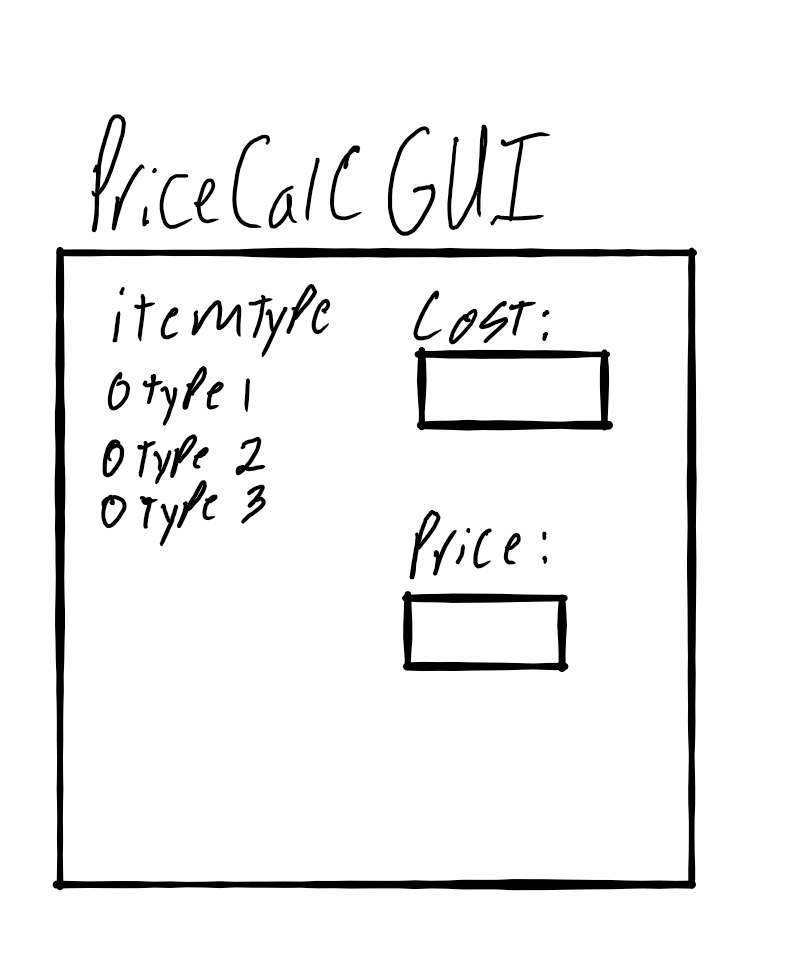 PriceCalc GUI
itemtype
O type 1
O type 2
O type 3
Cost:
Price: